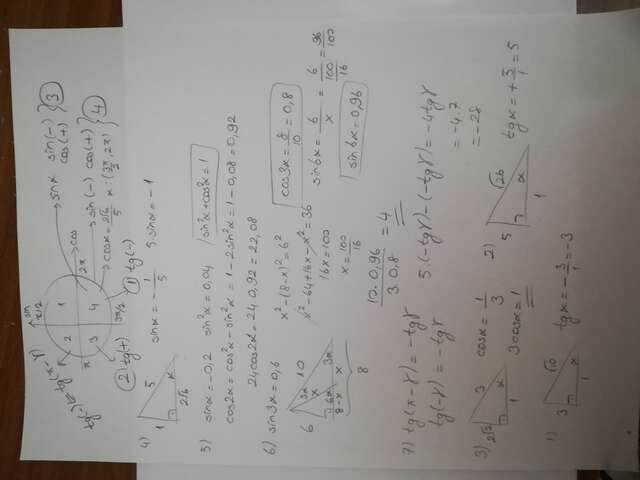 tg(-)=tg(π-γ)
sin
π/2
1
2
3
4
π
2π
3π/2
cos
sinx sin(-)
cos(+) } 3
sin(-) cos(+) } 4
cosx = 2√6/5 x:(3π/2, 2π)
② tg(+)
① tg(-)
4)
1
5
2√6
x
sinx = -1/5
5 sinx = -1
5) sinx = -0,2 sin²x = 0,04 sin²x + cos²x = 1
cos2x = cos²x - sin²x = 1 - 2sin²x = 1 - 0,08 = 0,92
24cos2x = 24·0,92 = 22,08
6) sin3x = 0,6
x² - (8-x)² = 6²
x² - 64 + 16x - x² = 36
16x = 100
x = 100/16
cos3x = 8/10 = 0,8
sin6x = 6/x = 6/(100/16) = 96/100
sin6x = 0,96
6
10
3x
x
6x
3x
8-x
x
8
10·0,96/3·0,8 = 4
7) tg(π-γ) = -tgγ
tg(-γ) = -tgγ
5(-tgγ) - (-tgγ) = -4tgγ
= -4·7
= -28
3)
2√2
3
x
1
cosx = 1/3
3cosx = 1
2)
5
√26
x
1
tgx = +5/1 = 5
1)
3
√10
x
1
tgx = -3/1 = -3